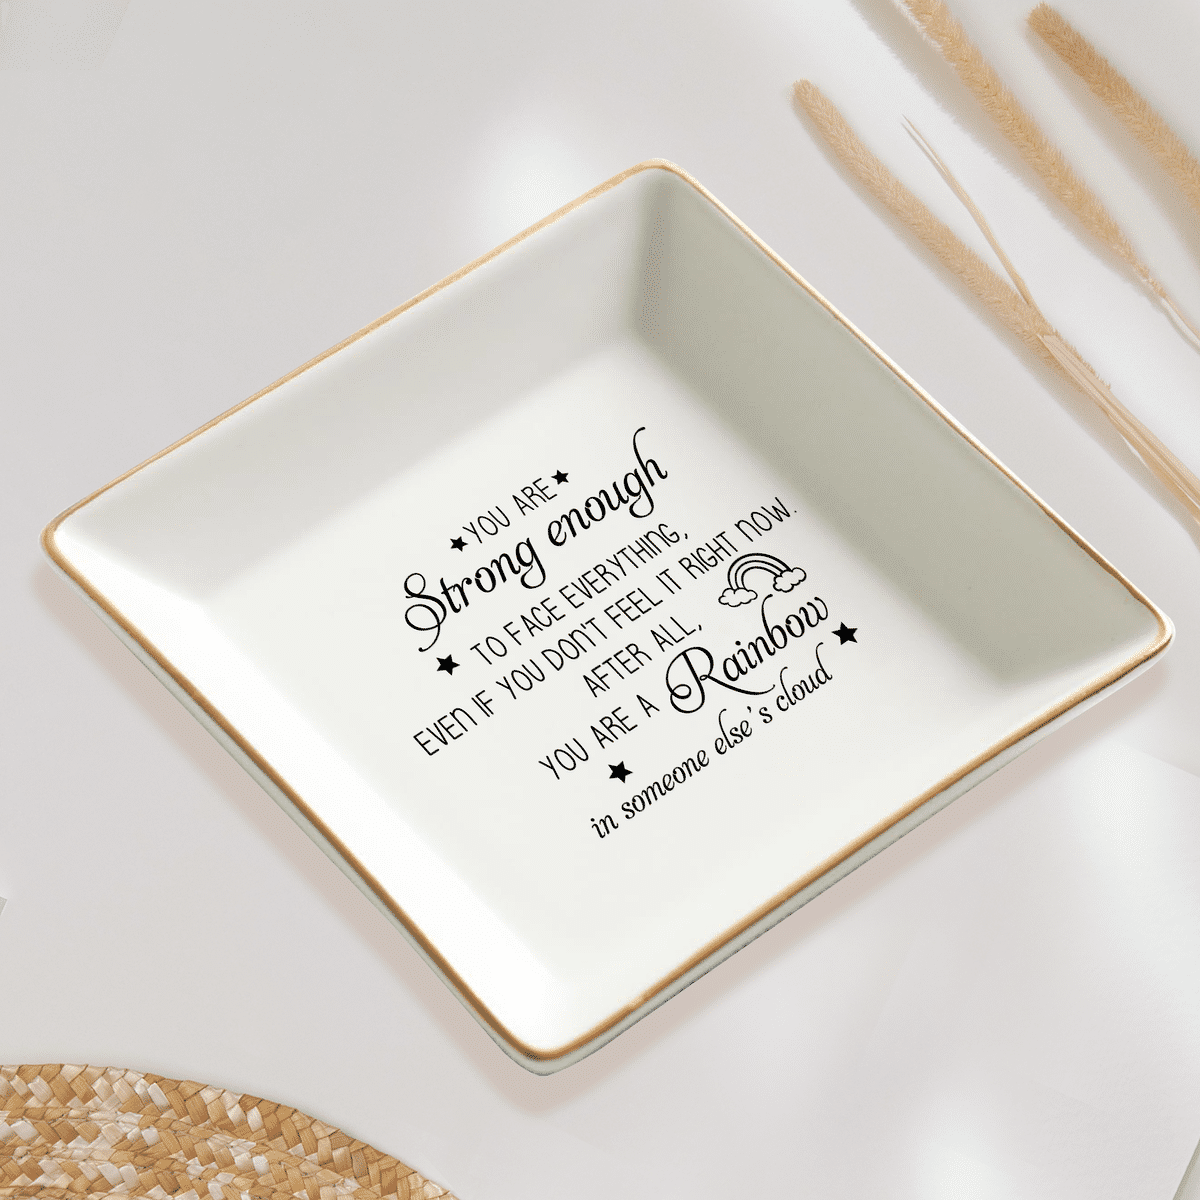 YOU ARE
Strong enough
TO FACE EVERYTHING,
EVEN IF YOU DON'T FEEL IT RIGHT NOW.
AFTER ALL,
YOU ARE A Rainbow
in someone else's cloud